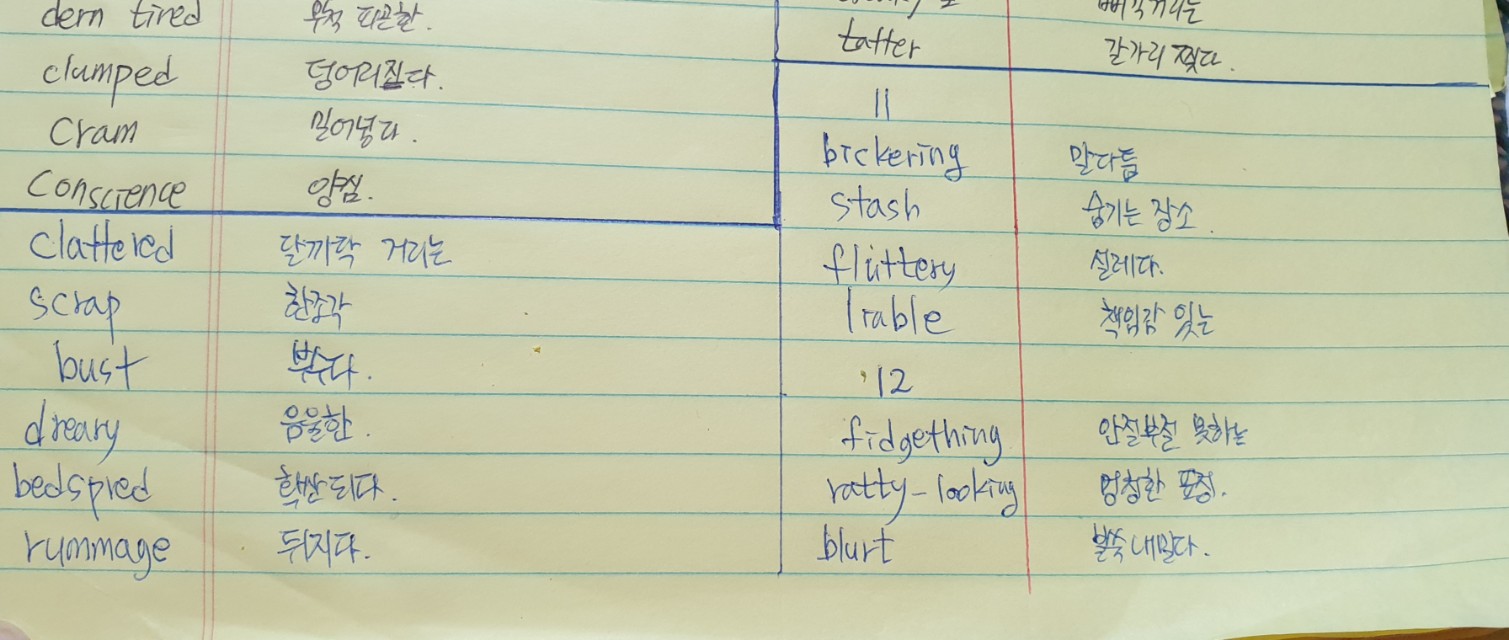 dern tired 무척 피곤한.
clumped 덩어리진다.
Cram 밀어넣다.
Conscience 양심.
Clattered 달까닥 거리는
scrap 한조각
bust 부수다.
dreary 음울한.
bedspred 확산되다.
rummage 뒤지다.
삐걱거리는
tatter 갈가리 찢다.
11
bickering 말다툼
stash 숨기는 장소.
fluttery 설레다.
liable 책임감 있는
12
fidgething 안절부절 못하는
ratty-looking 멍청한 표정.
blurt 불쑥 내밀다.